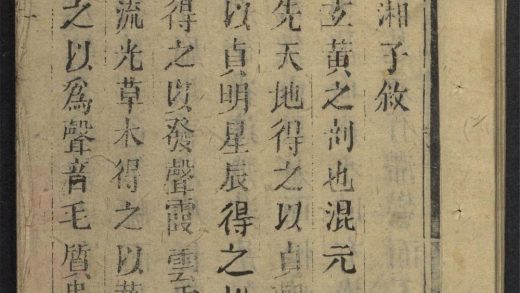 湘子敘
玄黃之剖也混元
先天地得之以貞
以貞明星辰得之
得之以發聲霞雲
流光草木得之以
之以爲聲音毛質